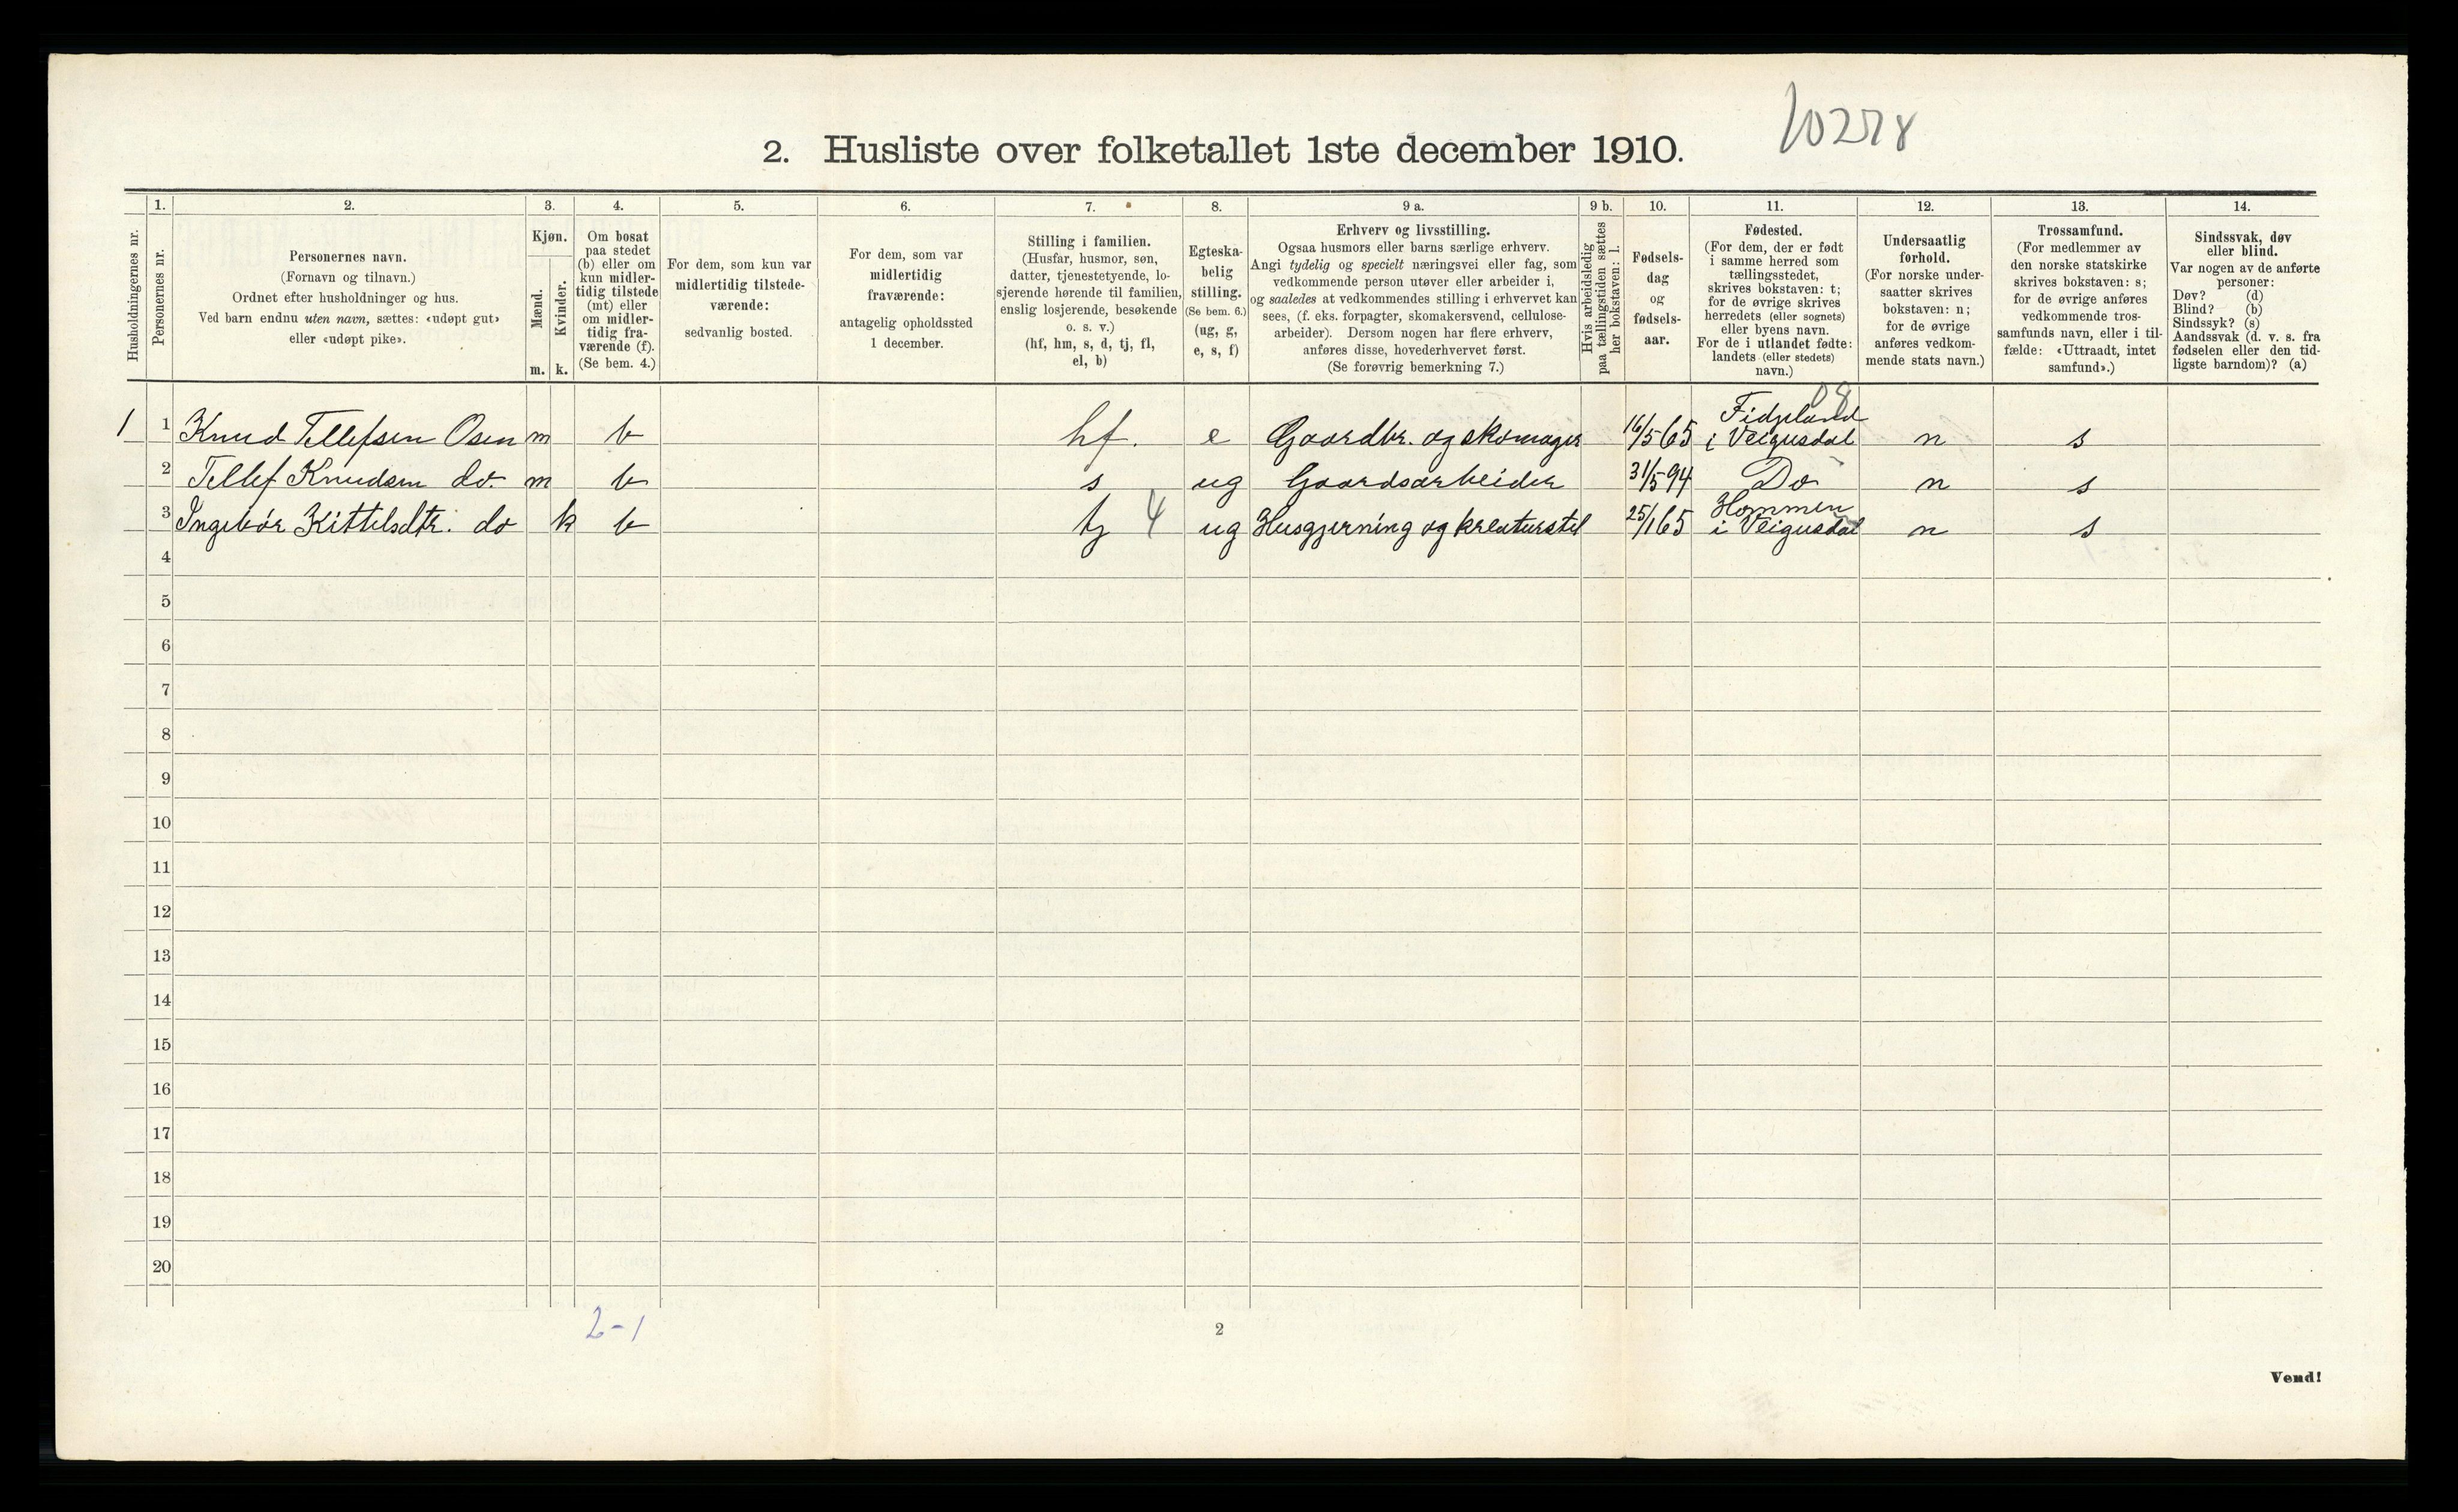 10278
2. Husliste over folketallet 1ste december 1910.
Husholdningernes nr.
1.
Personernes nr.
2.
Personernes navn.
(Fornavn og tilnavn.)
Ordnet efter husholdninger og hus.
Ved barn endnu uten navn, sættes: «udøpt gut»
eller «udøpt pike».
3.
Kjøn.
Mænd.
Kvinder.
m. k.
4.
Om bosat
paa stedet
(b) eller om
kun midler-
tidig tilstede
(mt) eller
om midler-
tidig fra-
værende (f).
(Se bem. 4.)
5.
For dem, som kun var
midlertidig tilstede-
værende:
sedvanlig bosted.
6.
For dem, som var
midlertidig
fraværende:
antagelig opholdssted
1 december.
7.
Stilling i familien.
(Husfar, husmor, søn,
datter, tjenestetyende, lo-
sjerende hørende til familien,
enslig losjerende, besøkende
o. s. v.)
(hf, hm, s, d, tj, fl,
el, b)
8.
Egteska-
belig
stilling.
(Se bem. 6.)
(ug, g,
e, s, f)
9 a.
Erhverv og livsstilling.
Ogsaa husmors eller barns særlige erhverv.
Angi tydelig og specielt næringsvei eller fag, som
vedkommende person utøver eller arbeider i,
og saaledes at vedkommendes stilling i erhvervet kan
sees, (f. eks. forpagter, skomakersvend, cellulose-
arbeider). Dersom nogen har flere erhverv,
anføres disse, hovederhvervet først.
(Se forøvrig bemerkning 7.)
9 b.
Hvis arbeidsledig
paa tællingstiden sættes
her bokstaven: l.
10.
Fødsels-
dag
og
fødsels-
aar.
11.
Fødested.
(For dem, der er født
i samme herred som
tællingsstedet,
skrives bokstaven: t;
for de øvrige skrives
herredets (eller sognets)
eller byens navn.
For de i utlandet fødte:
landets (eller stedets)
navn.)
12.
Undersaatlig
forhold.
(For norske under-
saatter skrives
bokstaven: n;
for de øvrige
anføres vedkom-
mende stats navn.)
13.
Trossamfund.
(For medlemmer av
den norske statskirke
skrives bokstaven: s;
for de øvrige anføres
vedkommende tros-
samfunds navn, eller i til-
fælde: «Uttraadt, intet
samfund».)
14.
Sindssvak, døv
eller blind.
Var nogen av de anførte
personer:
Døv? (d)
Blind? (b)
Sindssyk? (s)
Aandssvak (d. v. s. fra
fødselen eller den tid-
ligste barndom)? (a)
1 1 Knud Tellefsen Osen m b hf. e Gaardbr. og skomager 16/5 65 Fidjeland i Veigusdal n s
2 Tellef Knudsen do. m b s ug Gaardsarbeider 31/5 94 Do n s
3 Ingebór Kittelsdtr. do k b tj 4 ug Husgjerning og kreaturstel 25/1 65 Hommen i Veigusdal n s
4
5
6
7
8
9
10
11
12
13
14
15
16
17
18
19
20
2-1
2
Vend!